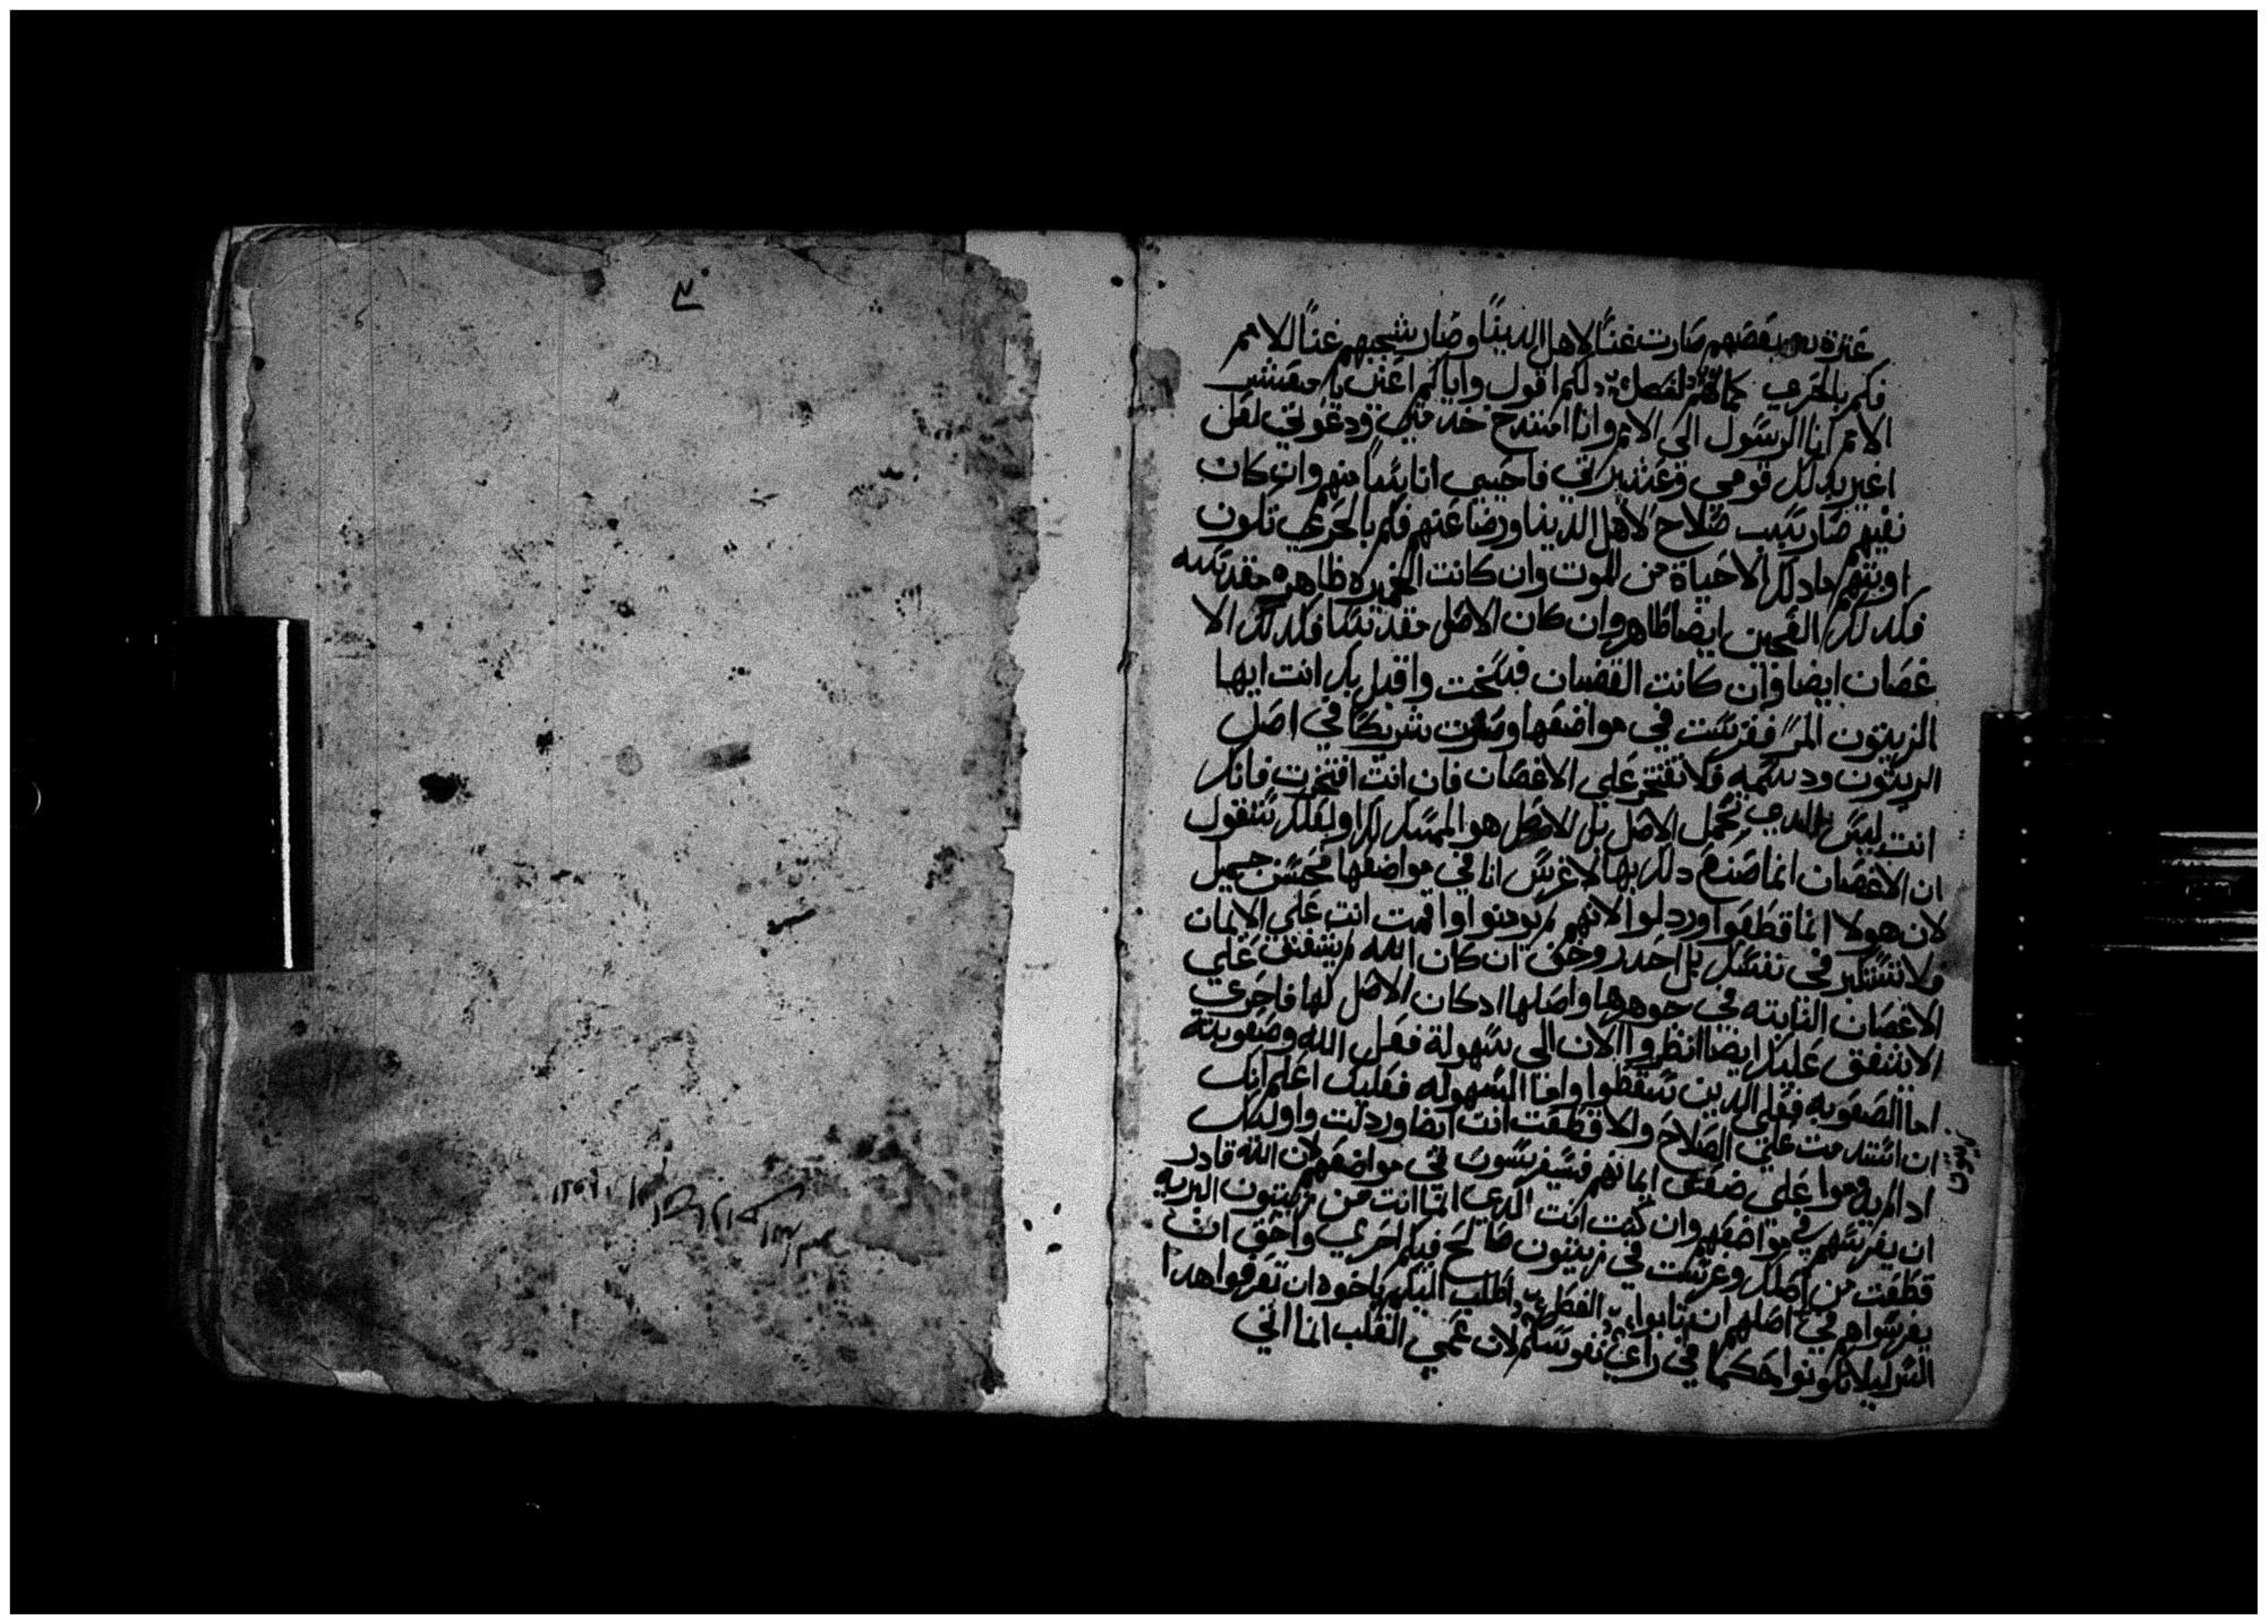 عثرة بعضهم صارت غنًا لاهل الدينا وصار شجبهم غنًا للامم
فكم بالحري كمالهم الفصل دلكم اقول واياكم اعني يا معشر
الامم انا الرسول الى الامم وانا امتدح خدمتي ودعوتي لعل
اغير بدلك قومي وعشيرتي فاحيي اناسًا منهم وان كان
نفيهم صار سبب صلاح لاهل الدينا ورضا عنهم فكم بالحري تكون
اوبتهم ما دلك الا حياة من الموت وان كانت الخميره طاهره مقدسه
فكدلك العجين ايضا طاهر وان كان الاصل مقدسا فكدلك الا
غصان ايضا وان كانت القضبان فسخت واقبل بك انت ايها
الزيتون المر فغرست في مواضعها وصرت شريكا في اصل
الزيتون ودسمه فلا تفتخر على الاغصان فان انت افتخرت فانك
انت ليس الدي تحمل الاصل بل الاصل هو الممسك لك ولعلك ستقول
ان الاغصان انما صنع دلك بها لاغرس انا في مواضعها محسن جميل
لان هولا انما قطعوا وردلوا لانهم لم يومنوا واقمت انت على الايمان
فلا تستكبر في نفسك بل احدر وخف ان كان الله لم يشفق على
الاغصان النابته في جوهرها واصلها ادكان الاصل لها فاحري
الا يشفق عليك ايضا انظروا الان الى سهولة فعل الله وصعوبته
اما الصعوبه فعلى الدين سقطوا واما السهوله فعليك اعلم انك
ان استدمت على الصلاح والا قطعت انت ايضا وردلت واوليك
ادا لم يدوموا على ضعف ايمانهم فسيغرسون في مواضعهم لان الله قادر
ان يغرسهم في مواضعهم وان كنت انت الدي انما انت من زيتون البريه
قطعت من اصلك وغرست في زيتون صالح فبكم احري واحق ان
يغرسوا هم في اصلهم ان تابوا الفصل واطلب اليكم يا اخوه ان تعرفوا هدا
السر ليلا تكونوا حكما في راي نفوسكم لان عمي القلب انما اتي